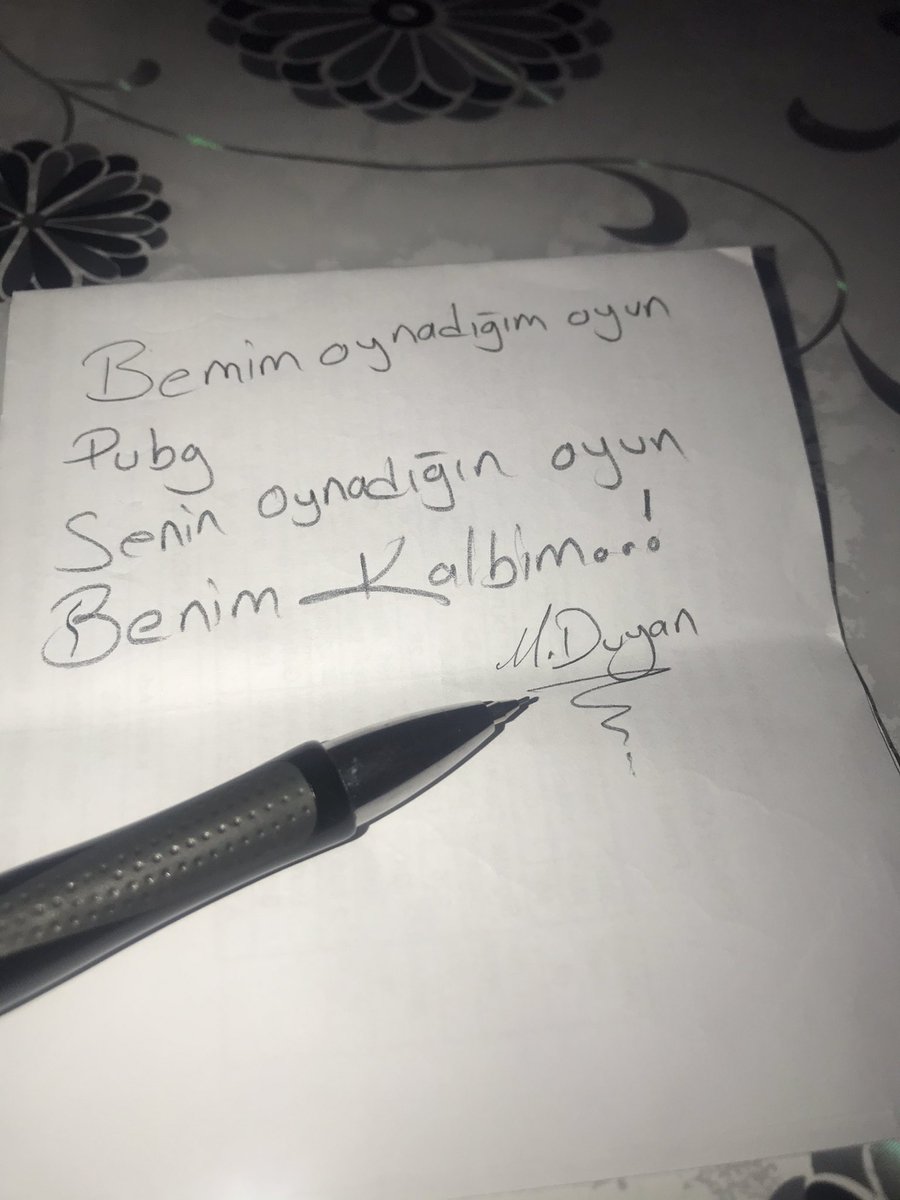 Bemim oynadığım oyun
Pubg
Senin oynadığın oyun
Benim Kalbim...!
M.Duyan